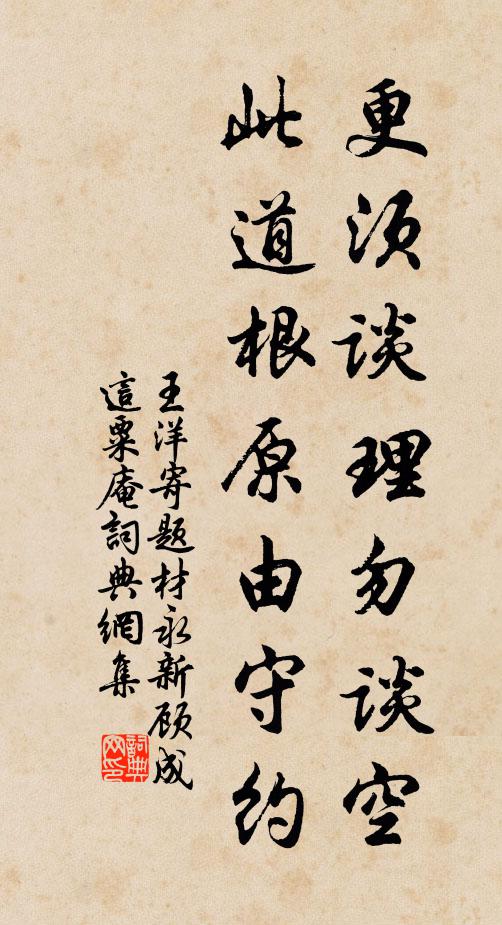 更须谈理勿谈空
此道根原由守约
王洋寄题材永新顾成
這粟庵詞典網集
詞典
网印